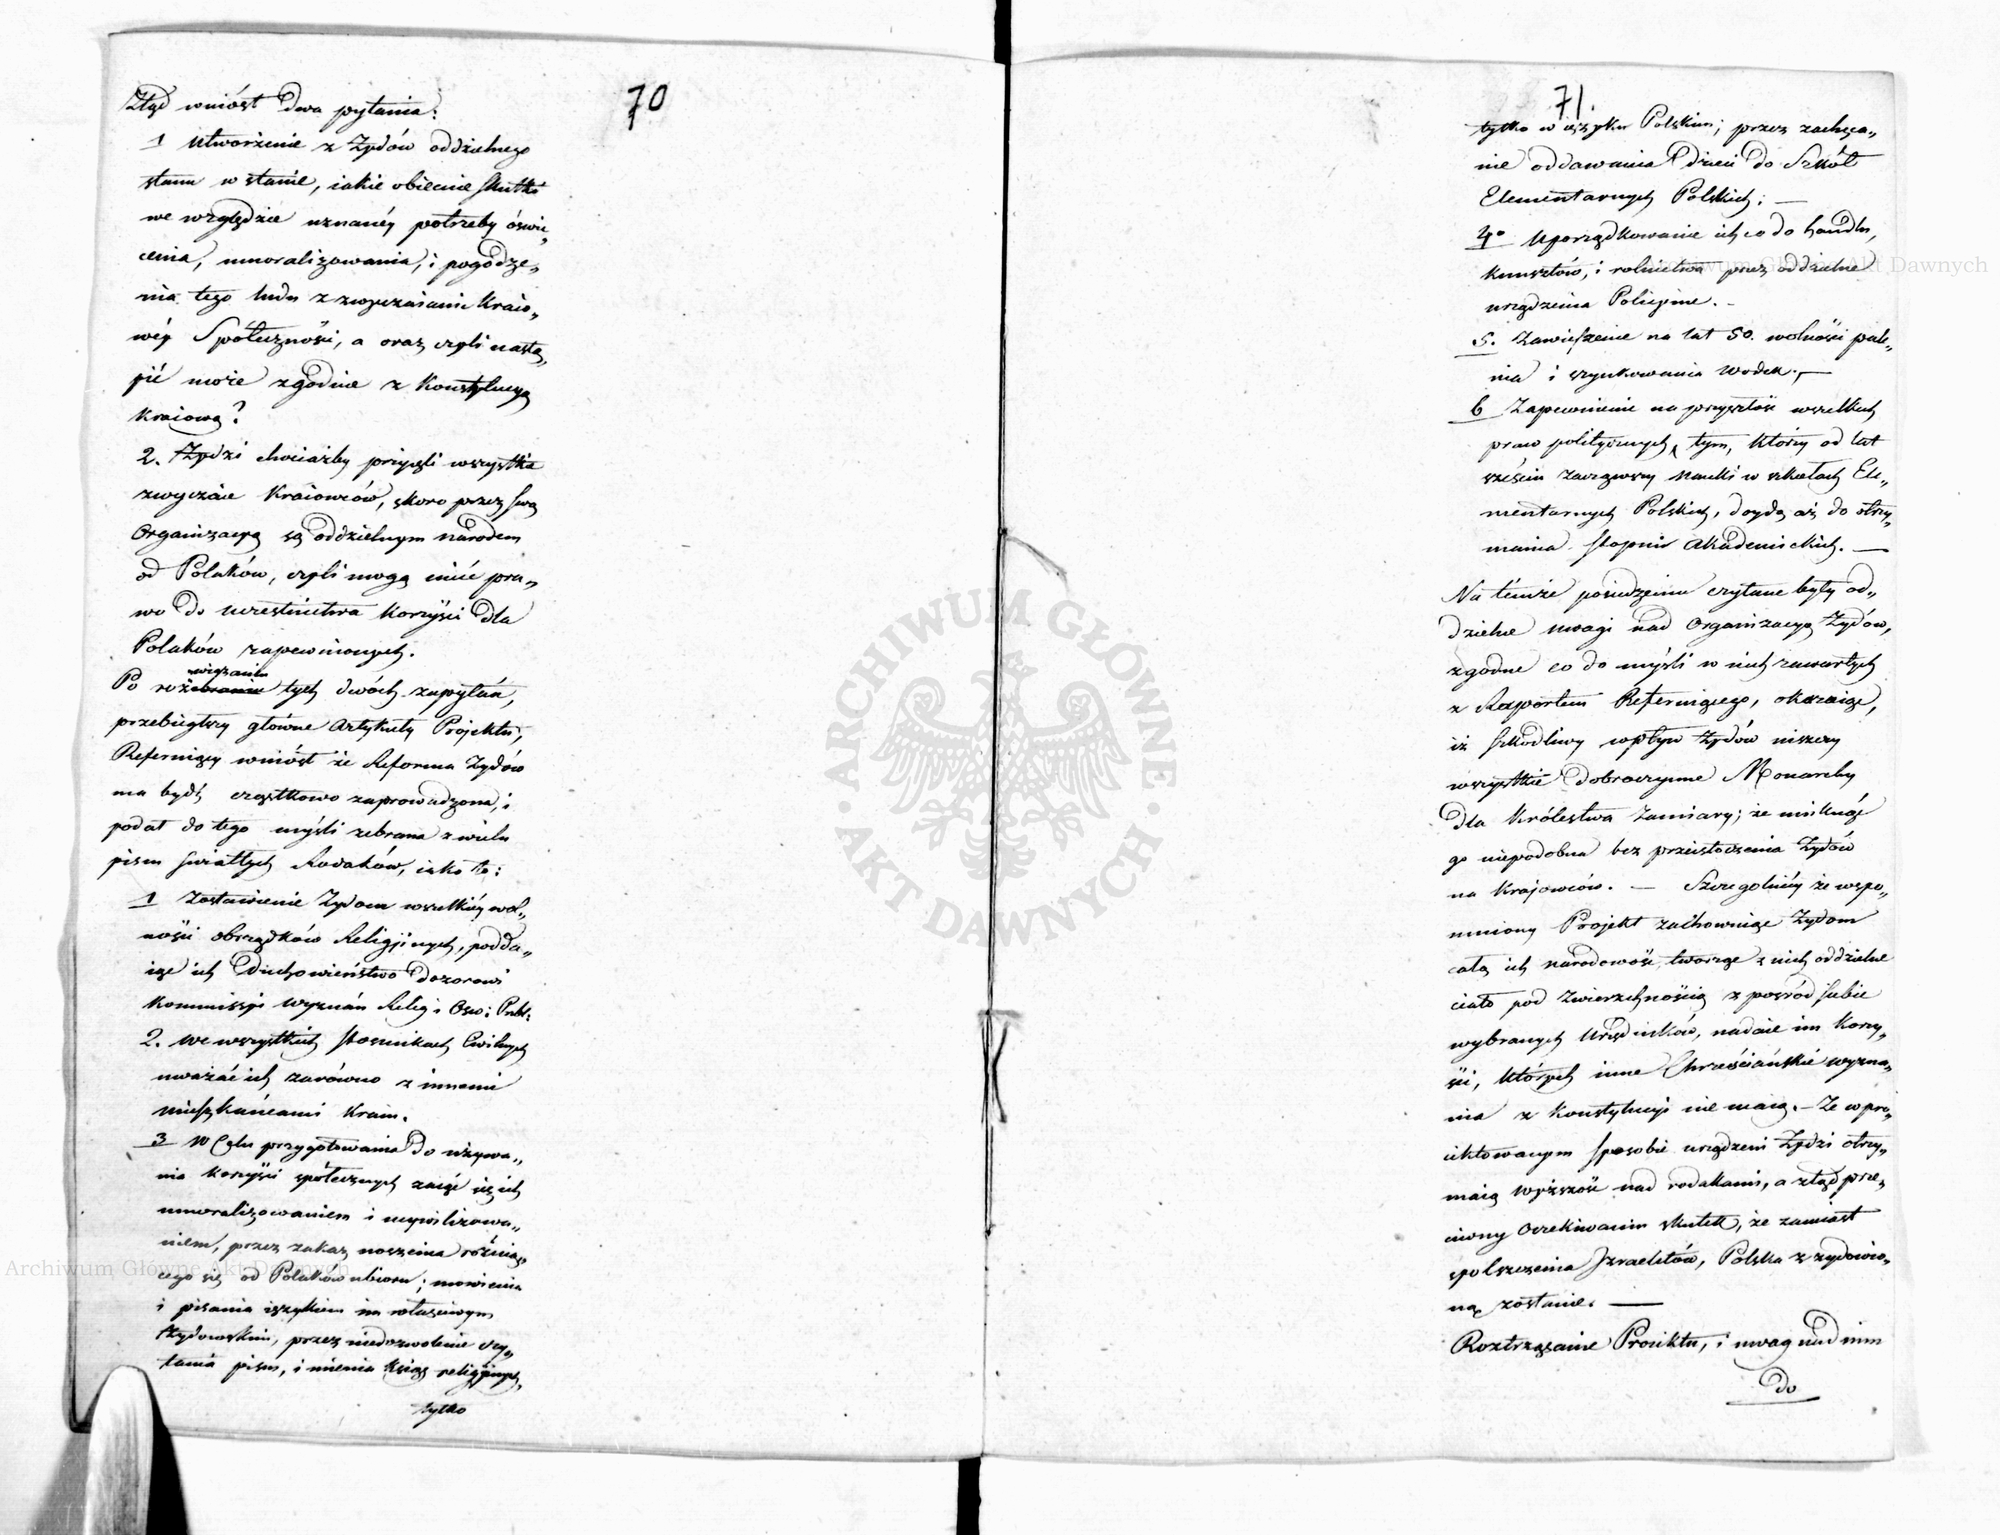 70
Ztąd wniósł dwa pytania:
1 Utworzenie z Żydów oddzielnego
stanu w stanie, iakie obiecuie skutki
we względzie uznanéy potrzeby oświe„
cenia, umoralizowania, i pogodze„
nia tego ludu z zwyczaiami Kraio„
wéy Społeczności, a oraz czyli nastą„
pić może zgodnie z Konstytucyą
Kraiową?
2. Żydzi chociażby przyięli wszystkie
zwyczaie Kraiowców, skoro przez swą
Organizacyą są oddzielnym narodem
od Polaków, czyli mogą mieć pra„
wo do uczestnictwa korzyści dla
Polaków zapewnionych.
wiązaniu
Po roz tych dwóch zapytań,
przebiegłszy główne Artykuły Projektu,
Referuiący wniósł że Reforma Żydów
ma bydź cząstkowo zaprowadzona, i
podał do tego myśli zebrane z wielu
pism światłych Rodaków, iako to:
1 Zostawienie Żydom wszelkiéy wol„
ności obrządków Religijnych, podda„
iąc ich Duchowieństwo dozorowi
Kommissyi Wyznań Relig: i Ośw: Publ:
2. We wszystkich stosunkach Cywilnych
uważać ich zarówno z innemi
mieszkańcami Kraiu.
3 W Celu przygotowania do używa„
nia korzyści społecznych zaiąć się ich
umoralizowaniem i ucywilizowa„
niem, przez zakaz noszenia różnią„
cego się od Polaków ubioru; mówienia
i pisania ięzykiem im właściwym
Żydowskim, przez niedozwolenie czy„
tania pism, i mienia Ksiąg religijnych,
tylko
71.
tylko w ięzyku Polskim; przez zachęca„
nie oddawania dzieci do Szkół
Elementarnych Polskich; —
4° Uporządkowanie ich co do handlu,
kunsztów, i rolnictwa przez oddzielne
urządzenia Policyine. —
5. Zawieszenie na lat 50. wolności pale„
nia i szynkowania wódek. —
6 Zapewnienie na przyszłość wszelkich
praw politycznych, tym, którzy od lat
sześciu zacząwszy nauki w szkołach Ele„
mentarnych Polskich, doydą aż do otrzy„
mania stopni Akademickich. —
Na témże posiedzeniu czytane były od„
dzielne uwagi nad Organizacyą Żydów,
zgodne co do myśli w nich zawartych
z Raportem Referuiącego, okazuiąc,
iż szkodliwy wpływ Żydów niszczy
wszystkie dobroczynne Monarchy
dla Królestwa zamiary; że uniknąć
go niepodobna bez przeistoczenia Żydów
na Krajowców. — Szczególniéy że wspo„
mniony Projekt zachowuiąc Żydom
całą ich narodowość, tworząc z nich oddzielne
ciało pod zwierzchnością z pośród siebie
wybranych Urzędników, nadaie im korzy„
ści, których inne Chrześciańskie wyzna„
nia z Konstytucyi nie maią. — Że w pro„
iektowanym sposobie urządzeni Żydzi otrzy„
maią wyższość nad rodakami, a ztąd prze„
ciwny oczekiwaniu skutek, że zamiast
spolszczenia Izraelitów, Polska zżydowio„
ną zostanie. —
Roztrząsanie Proiektu, i uwag nad nim
do
ARCHIWUM GŁÓWNE AKT DAWNYCH
Archiwum Główne Akt Dawnych
Archiwum Główne Akt Dawnych